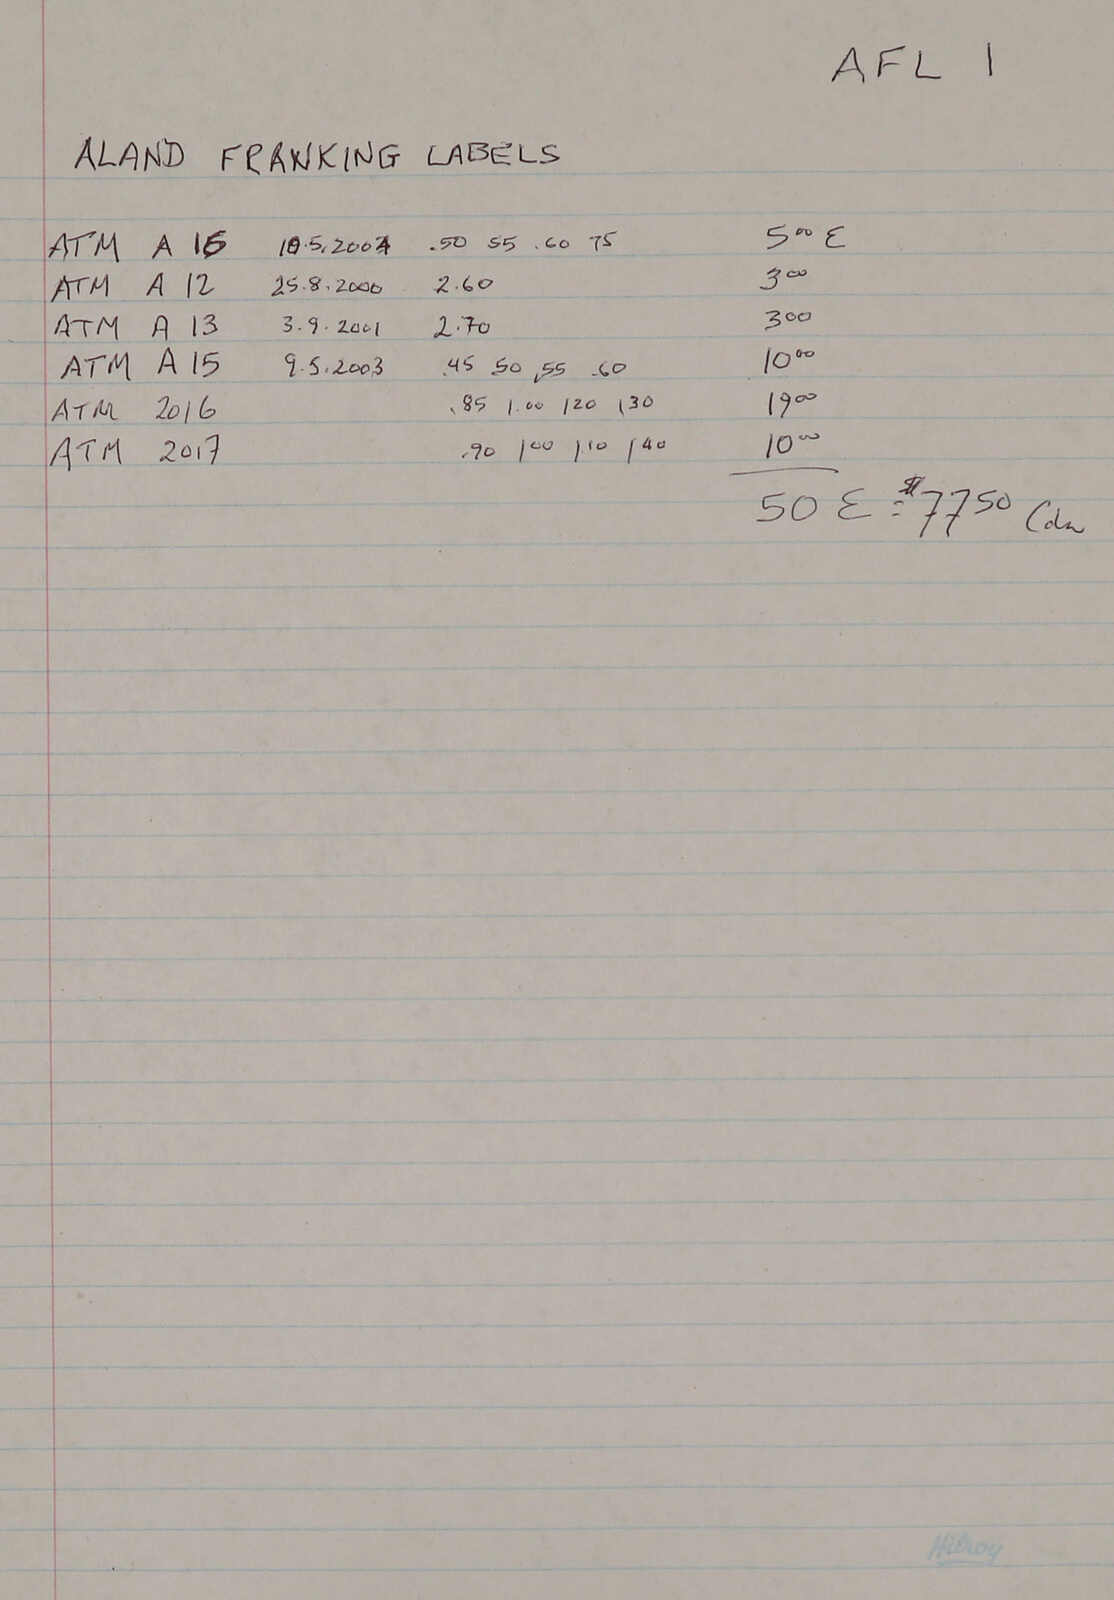 AFL 1
ALAND FRANKING LABELS
ATM A 16 10.5.2004 .50 55 .60 75 5⁰⁰ E
ATM A 12 25.8.2000 2.60 3⁰⁰
ATM A 13 3.9.2001 2.70 3⁰⁰
ATM A 15 9.5.2003 .45 50 .55 .60 10⁰⁰
ATM 2016 .85 1.00 120 130 19⁰⁰
ATM 2017 .90 1⁰⁰ 1.10 1⁴⁰ 10⁰⁰
50 E = $77⁵⁰ Cdn
Hilroy